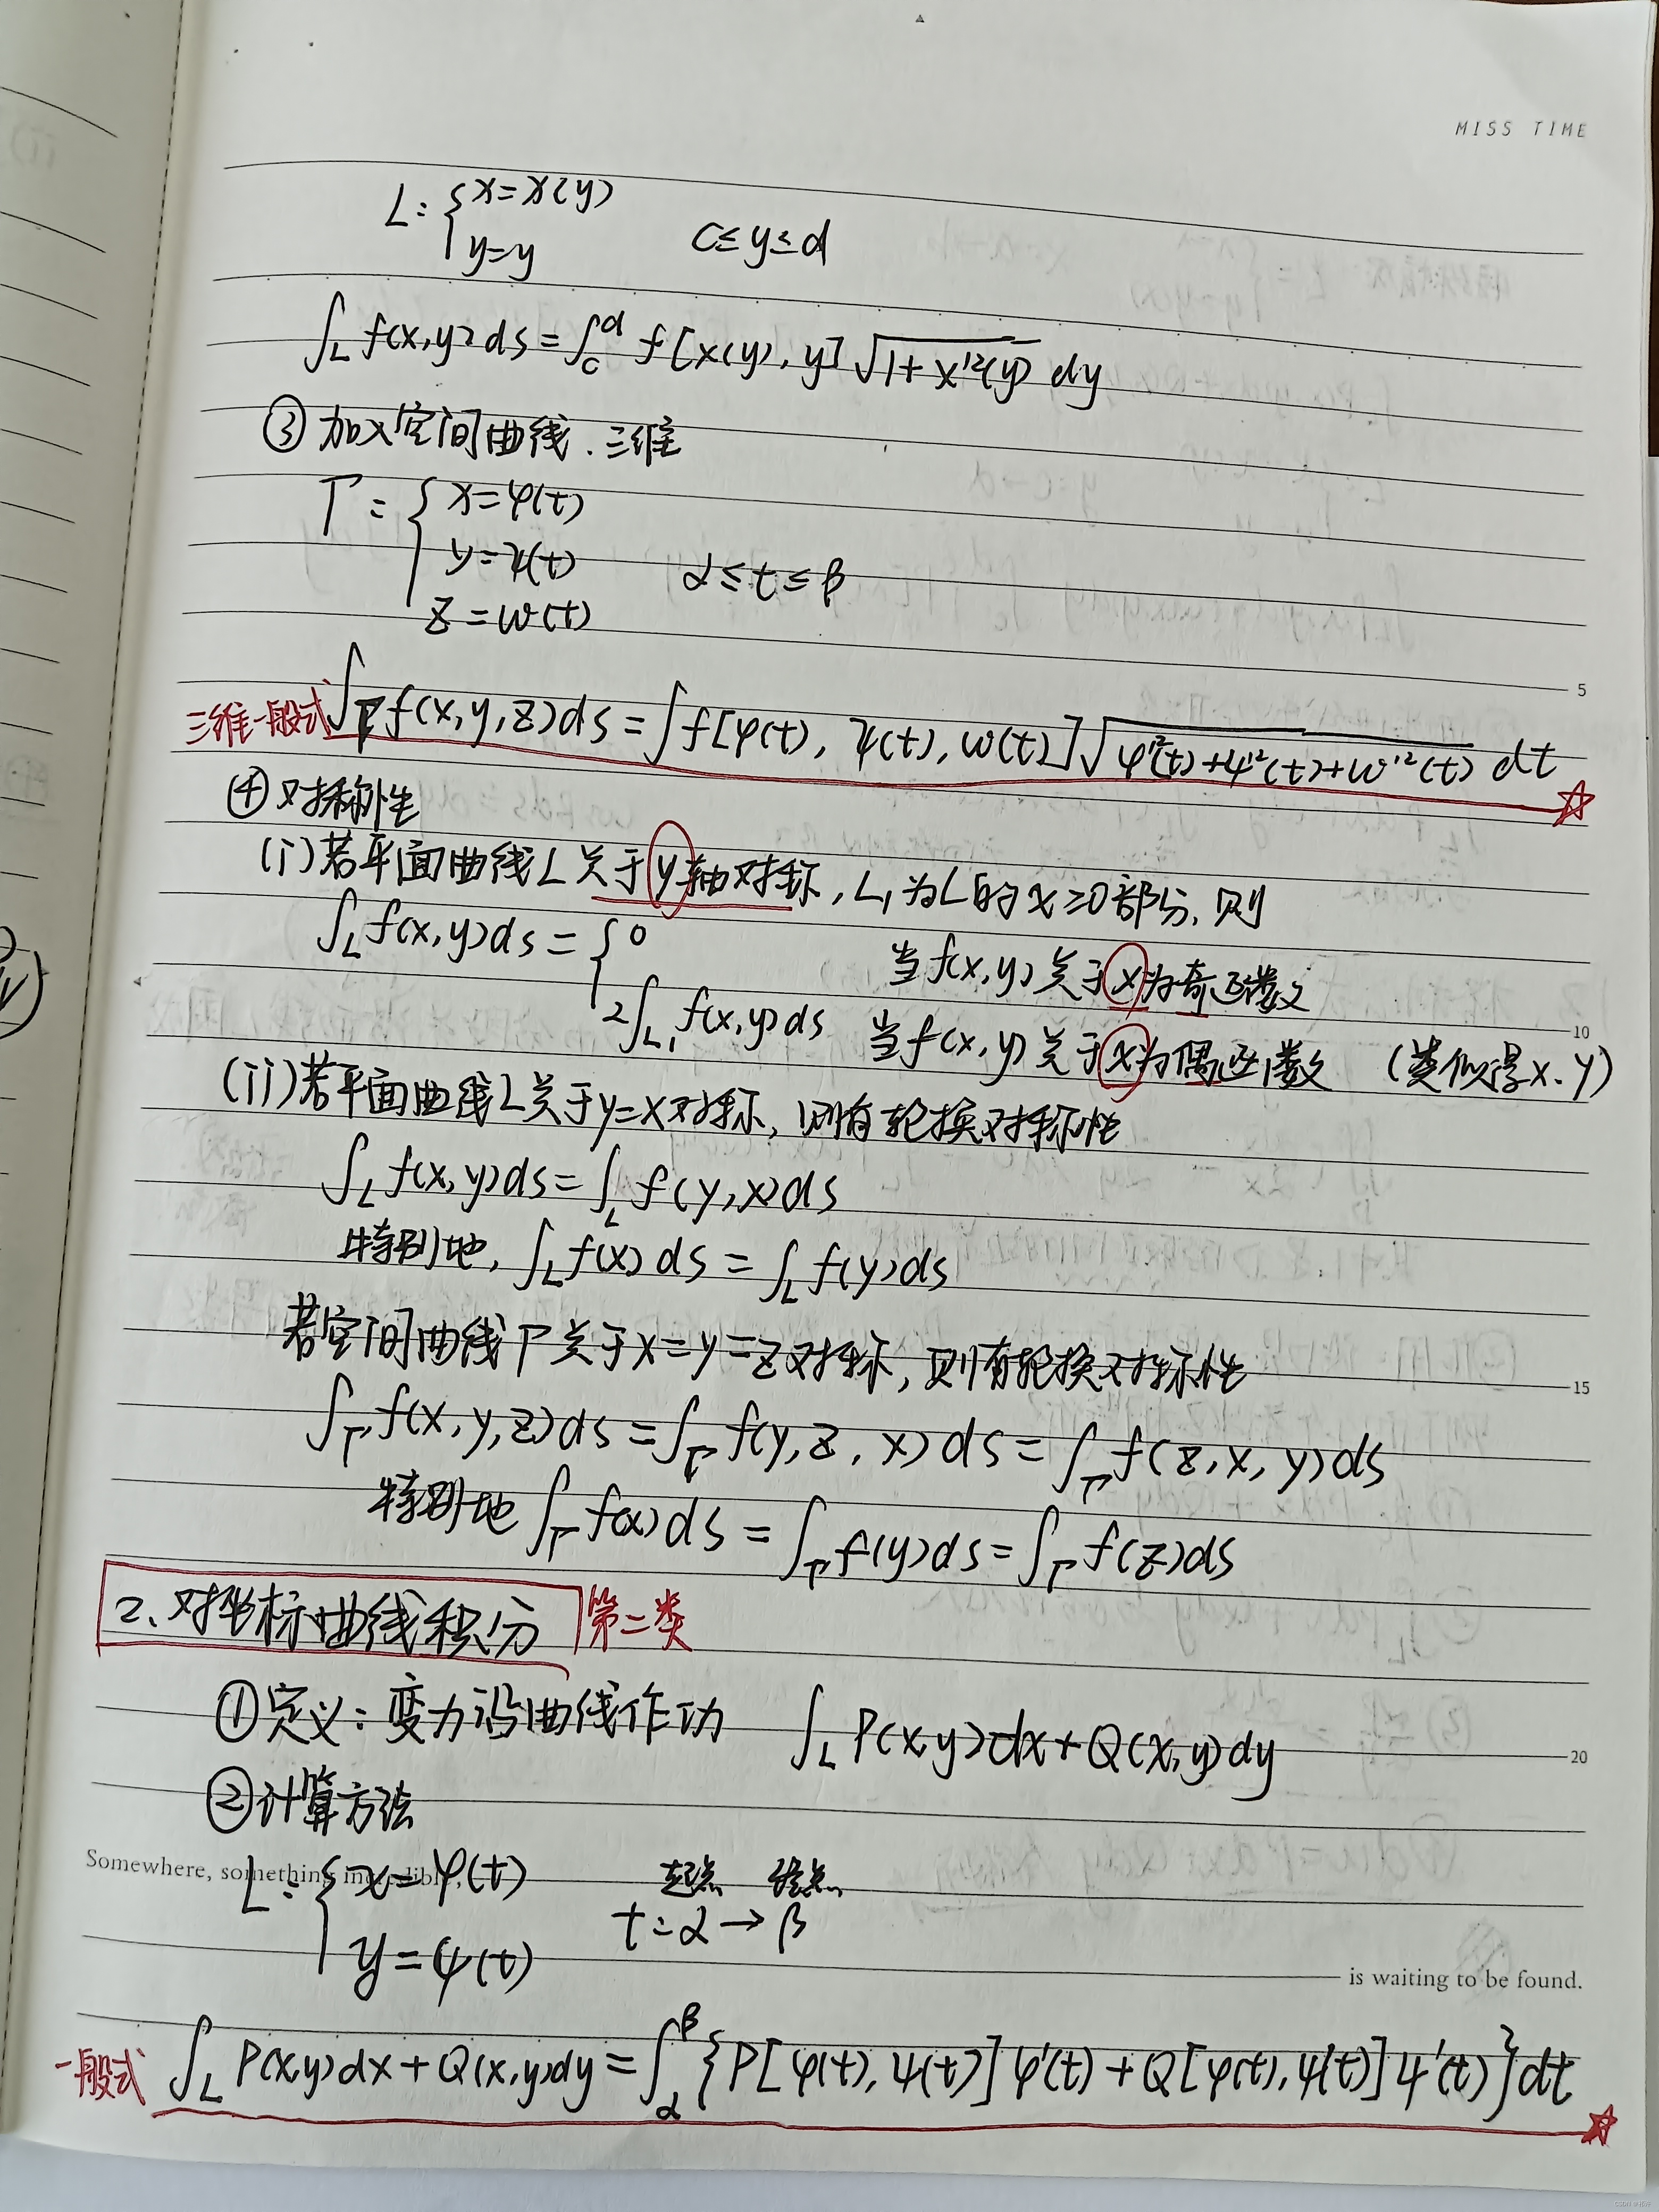 MISS TIME
L: { x=x(y)
y=y c≤y≤d
∫_L f(x,y)ds=∫_c^d f[x(y),y]√(1+x'²(y)) dy
③ 加入空间曲线.三维
Γ: { x=φ(t)
y=ψ(t) α≤t≤β
z=ω(t)
5
三维一般式 ∫_Γ f(x,y,z)ds=∫f[φ(t),ψ(t),ω(t)]√(φ'²(t)+ψ'²(t)+ω'²(t)) dt ☆
④ 对称性
(i)若平面曲线L关于y轴对称,L₁为L的x≥0部分,则
∫_L f(x,y)ds= { 0 当f(x,y)关于x为奇函数
2∫_L₁ f(x,y)ds 当f(x,y)关于x为偶函数 (类似得x、y)
10
(ii)若平面曲线L关于y=x对称,则有轮换对称性
∫_L f(x,y)ds=∫_L f(y,x)ds
特别地,∫_L f(x)ds=∫_L f(y)ds
若空间曲线Γ关于x=y=z对称,则有轮换对称性
15
∫_Γ f(x,y,z)ds=∫_Γ f(y,z,x)ds=∫_Γ f(z,x,y)ds
特别地∫_Γ f(x)ds=∫_Γ f(y)ds=∫_Γ f(z)ds
2、对坐标曲线积分 第二类
① 定义:变力沿曲线作功 ∫_L P(x,y)dx+Q(x,y)dy
20
② 计算方法
Somewhere, something incredible,
L: { x=φ(t) 起点 终点
y=ψ(t) t:α→β
is waiting to be found.
一般式 ∫_L P(x,y)dx+Q(x,y)dy=∫_α^β{P[φ(t),ψ(t)]φ'(t)+Q[φ(t),ψ(t)]ψ'(t)}dt ☆